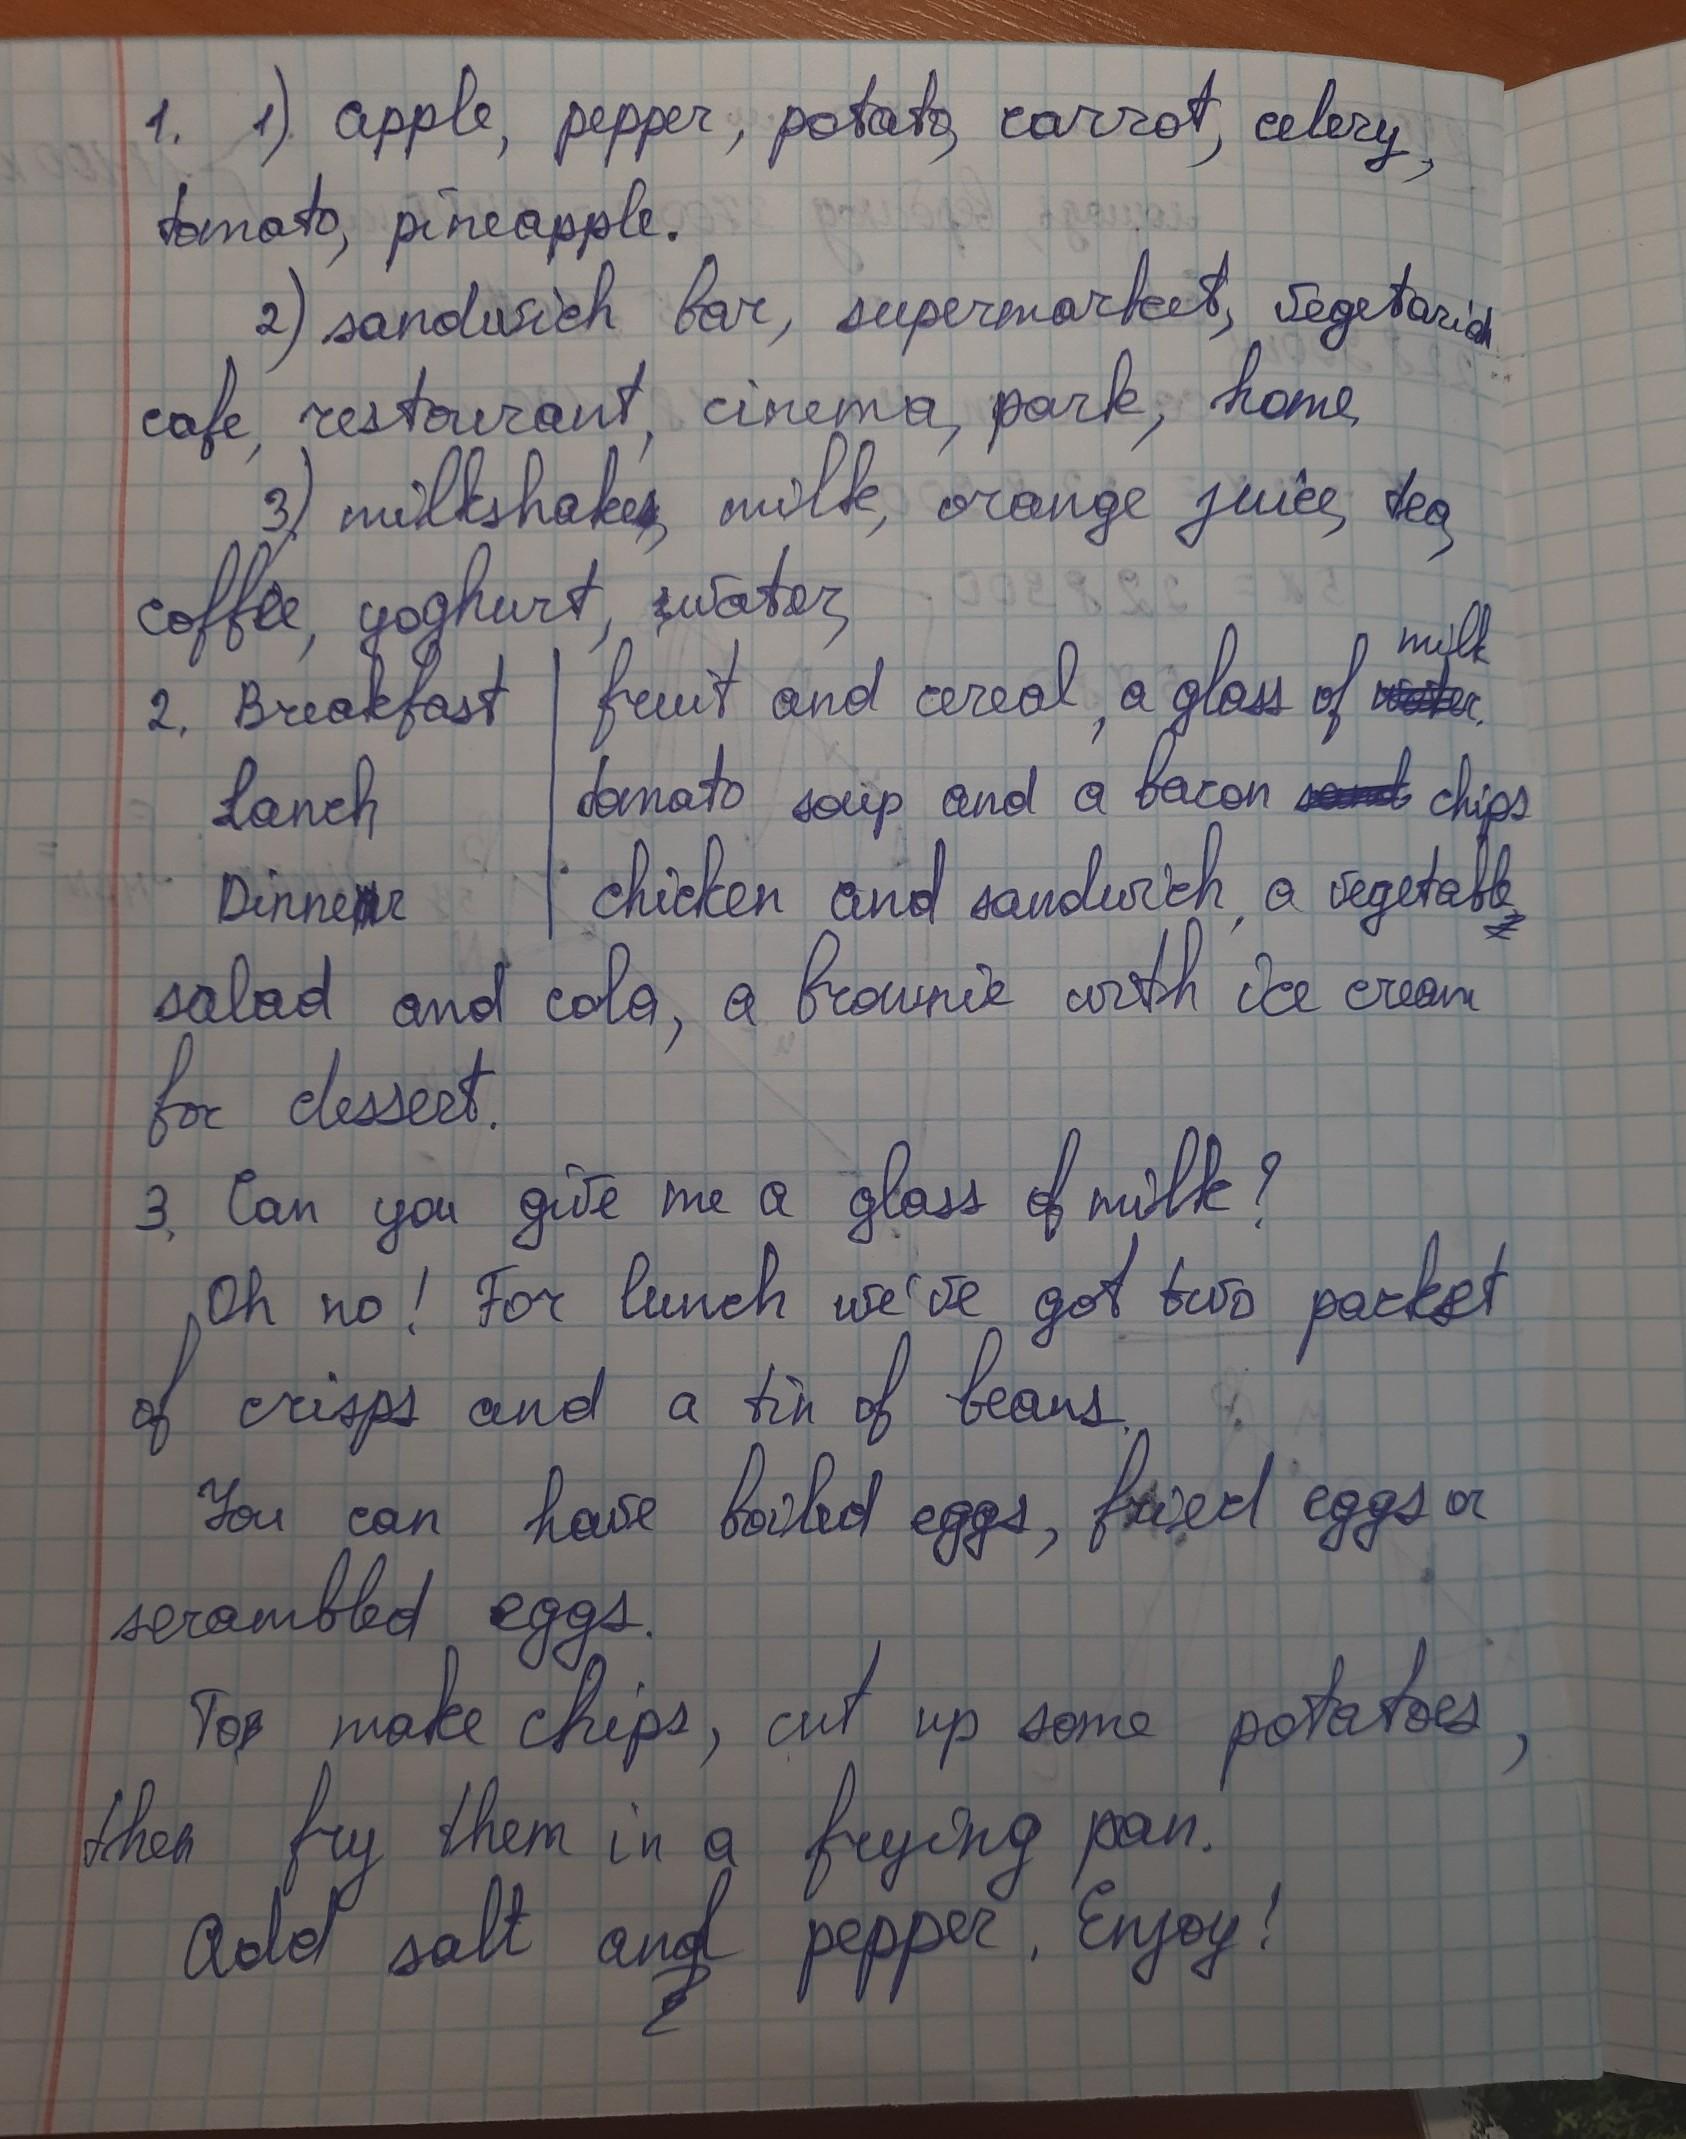 1. 1) apple, pepper, potato, carrot, celery,
tomato, pineapple.
2) sandwich bar, supermarket, vegetarian
cafe, restourant, cinema, park, home,
3) milkshake, milk, orange juice, tea,
coffee, yoghurt, water,
milk
2. Breakfast | fruit and cereal, a glass of water.
Lanch | tomato soup and a bacon sand chips
Dinner | chicken and sandwich, a vegetable
salad and cola, a brownie with ice cream
for dessert.
3. Can you give me a glass of milk?
Oh no! For lunch we've got two packet
of crisps and a tin of beans.
You can have boiled eggs, fried eggs or
scrambled eggs.
To make chips, cut up some potatoes,
then fry them in a frying pan.
Add salt and pepper. Enjoy!